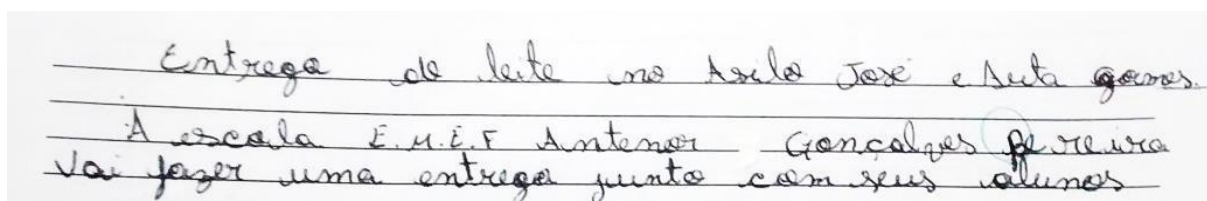 Entrega de leite no Asilo José e Auta gomes.
A escola E.M.E.F Antenor Gonçalves Pereira
Vai fazer uma entrega junto com seus alunos